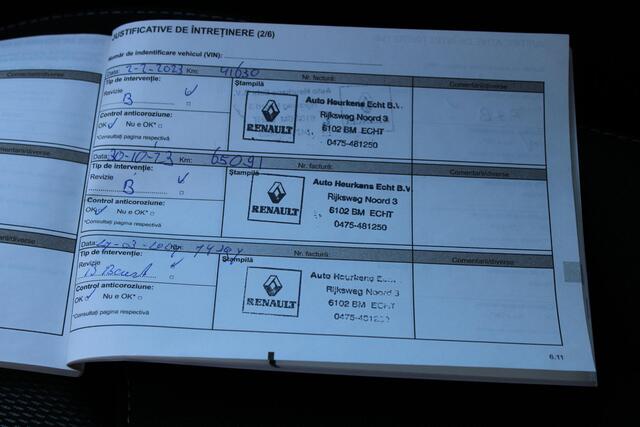 JUSTIFICATIVE DE ÎNTREȚINERE (2/6)
Număr de indentificare vehicul (VIN):
Comentarii/diverse
Data: 2-2-2023 Km: 41030 Nr. factură: Comentarii/diverse
Tip de intervenție:
Revizie
B
Ștampilă
RENAULT
Auto Heurkens Echt B.V.
Rijksweg Noord 3
6102 BM ECHT
0475-481250
Control anticoroziune:
OK Nu e OK*
*Consultați pagina respectivă
Comentarii/diverse
Data: 30-10-23 Km: 65091 Nr. factură: Comentarii/diverse
Tip de intervenție:
Revizie
B
Ștampilă
RENAULT
Auto Heurkens Echt B.V
Rijksweg Noord 3
6102 BM ECHT
0475-481250
Control anticoroziune:
OK Nu e OK*
*Consultați pagina respectivă
Comentarii/diverse
Data: Km: Nr. factură: Comentarii/diverse
Tip de intervenție:
Revizie
Ștampilă
RENAULT
Auto Heurkens
Rijksweg Noord 3
6102 BM ECHT
Control anticoroziune:
OK Nu e OK*
*Consultați pagina respectivă
6.11